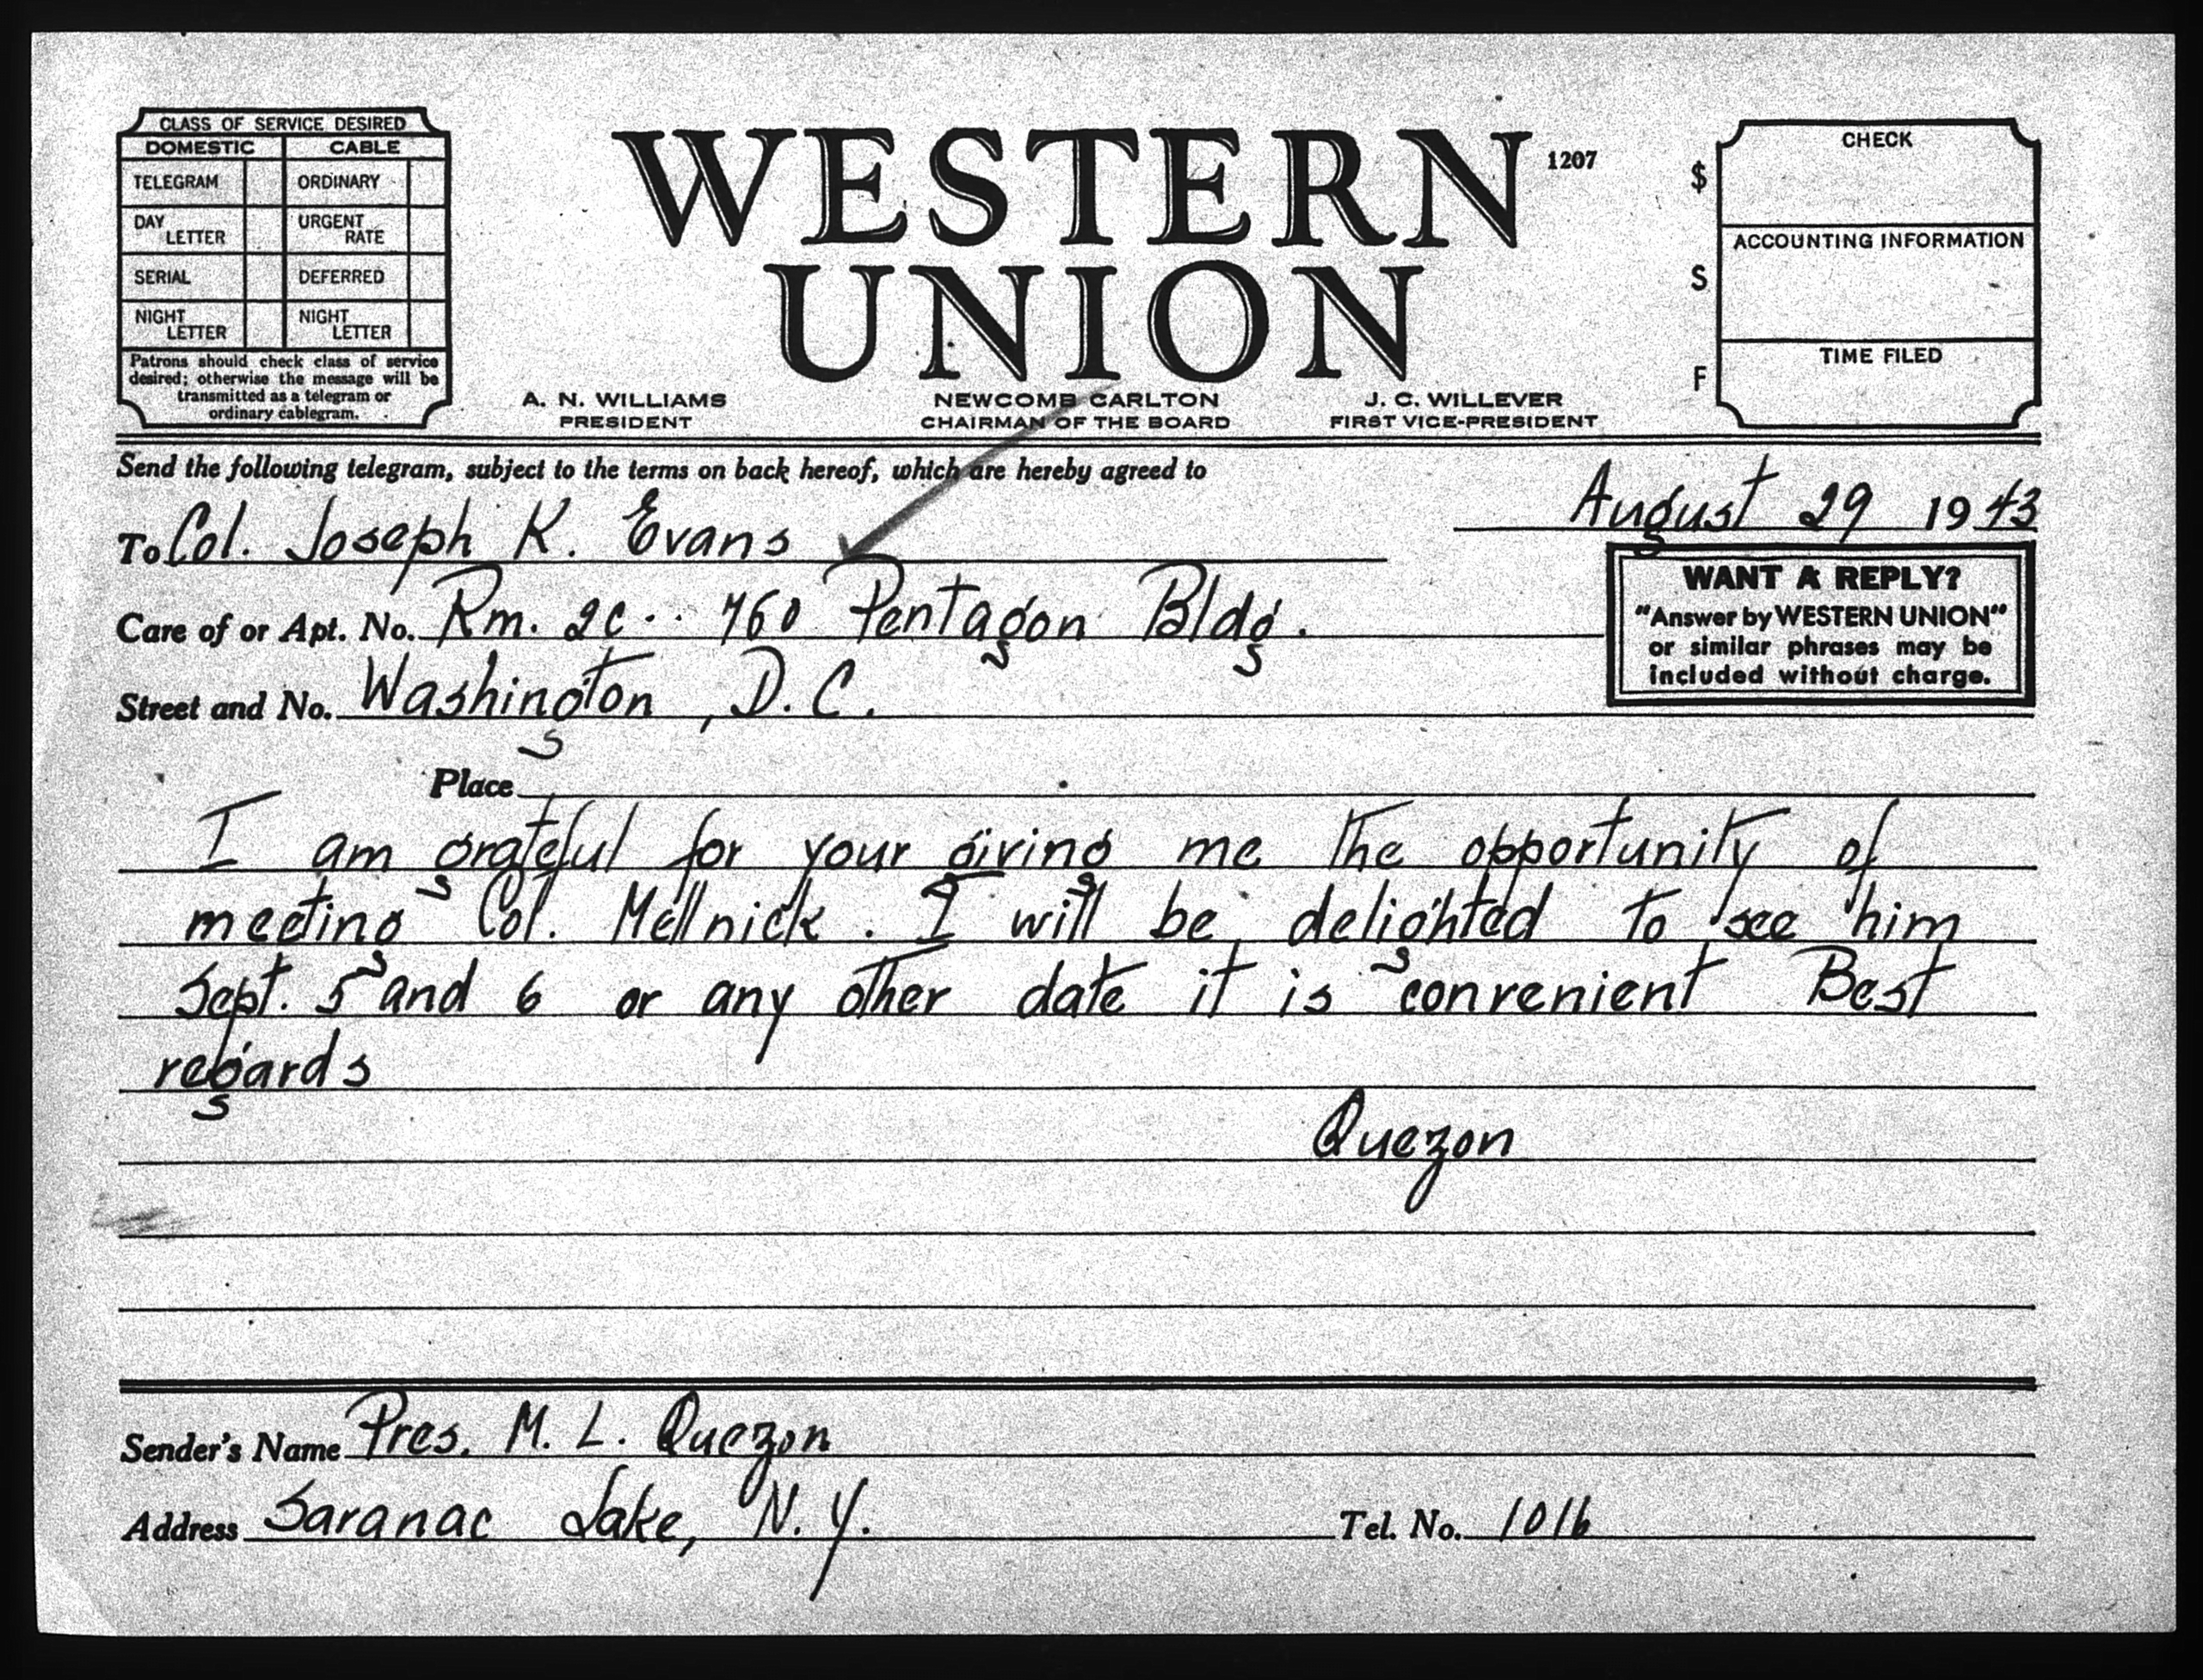 CLASS OF SERVICE DESIRED
DOMESTIC CABLE
TELEGRAM ORDINARY
DAY LETTER URGENT RATE
SERIAL DEFERRED
NIGHT LETTER NIGHT LETTER
Patrons should check class of service
desired; otherwise the message will be
transmitted as a telegram or
ordinary cablegram.
WESTERN
UNION
1207
A. N. WILLIAMS
PRESIDENT
NEWCOMB CARLTON
CHAIRMAN OF THE BOARD
J. C. WILLEVER
FIRST VICE-PRESIDENT
$ CHECK
S ACCOUNTING INFORMATION
F TIME FILED
Send the following telegram, subject to the terms on back hereof, which are hereby agreed to
August 29 1943
To Col. Joseph K. Evans
Care of or Apt. No. Rm. 2C.. 760 Pentagon Bldg.
Street and No. Washington, D.C.
WANT A REPLY?
"Answer by WESTERN UNION"
or similar phrases may be
included without charge.
Place
I am grateful for your giving me the opportunity of
meeting Col. Mellnick. I will be delighted to see him
Sept. 5 and 6 or any other date it is convenient Best
regards
Quezon
Sender's Name Pres. M. L. Quezon
Address Saranac Lake, N.Y. Tel. No. 1016